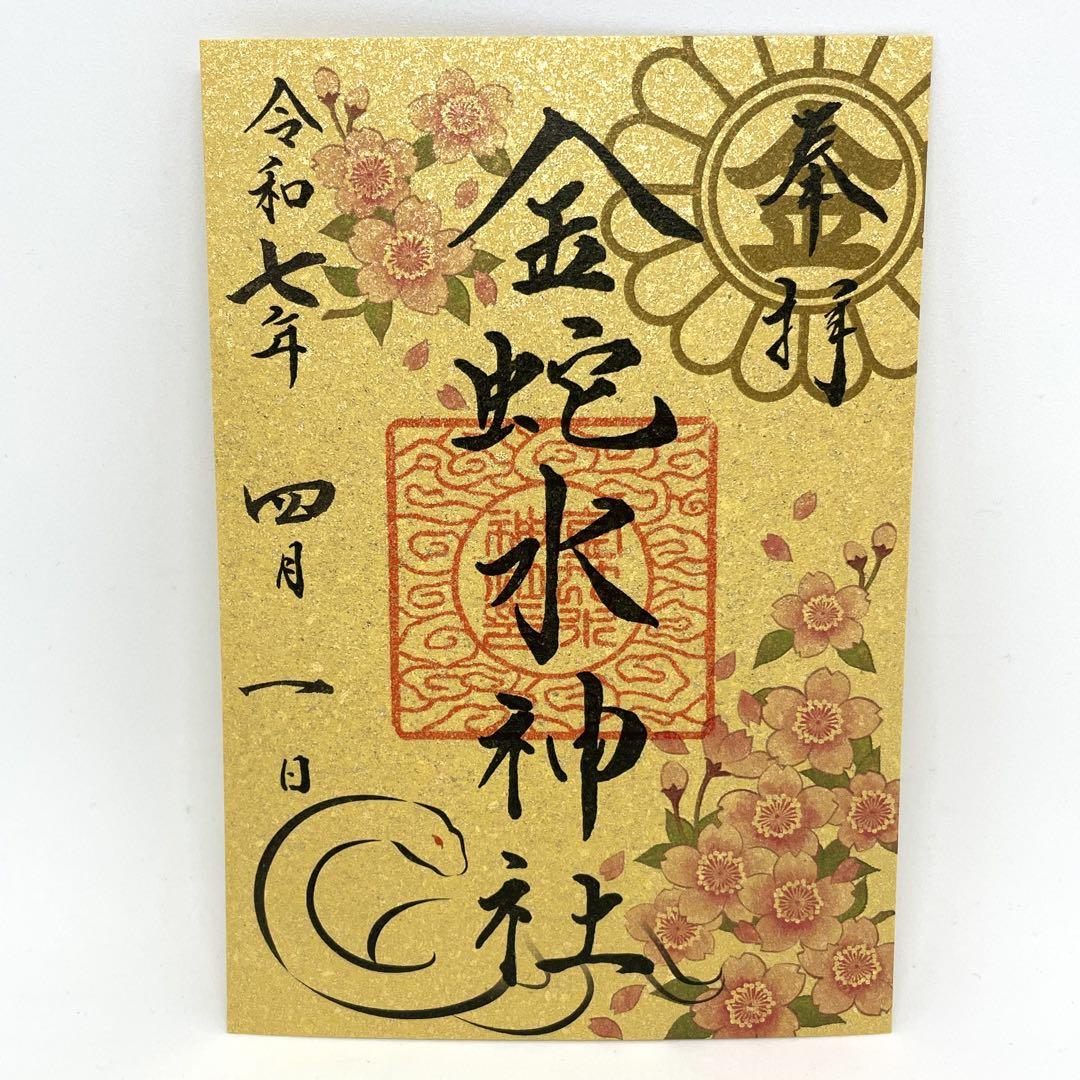 奉拝
金
金蛇水神社
令和七年 四月一日